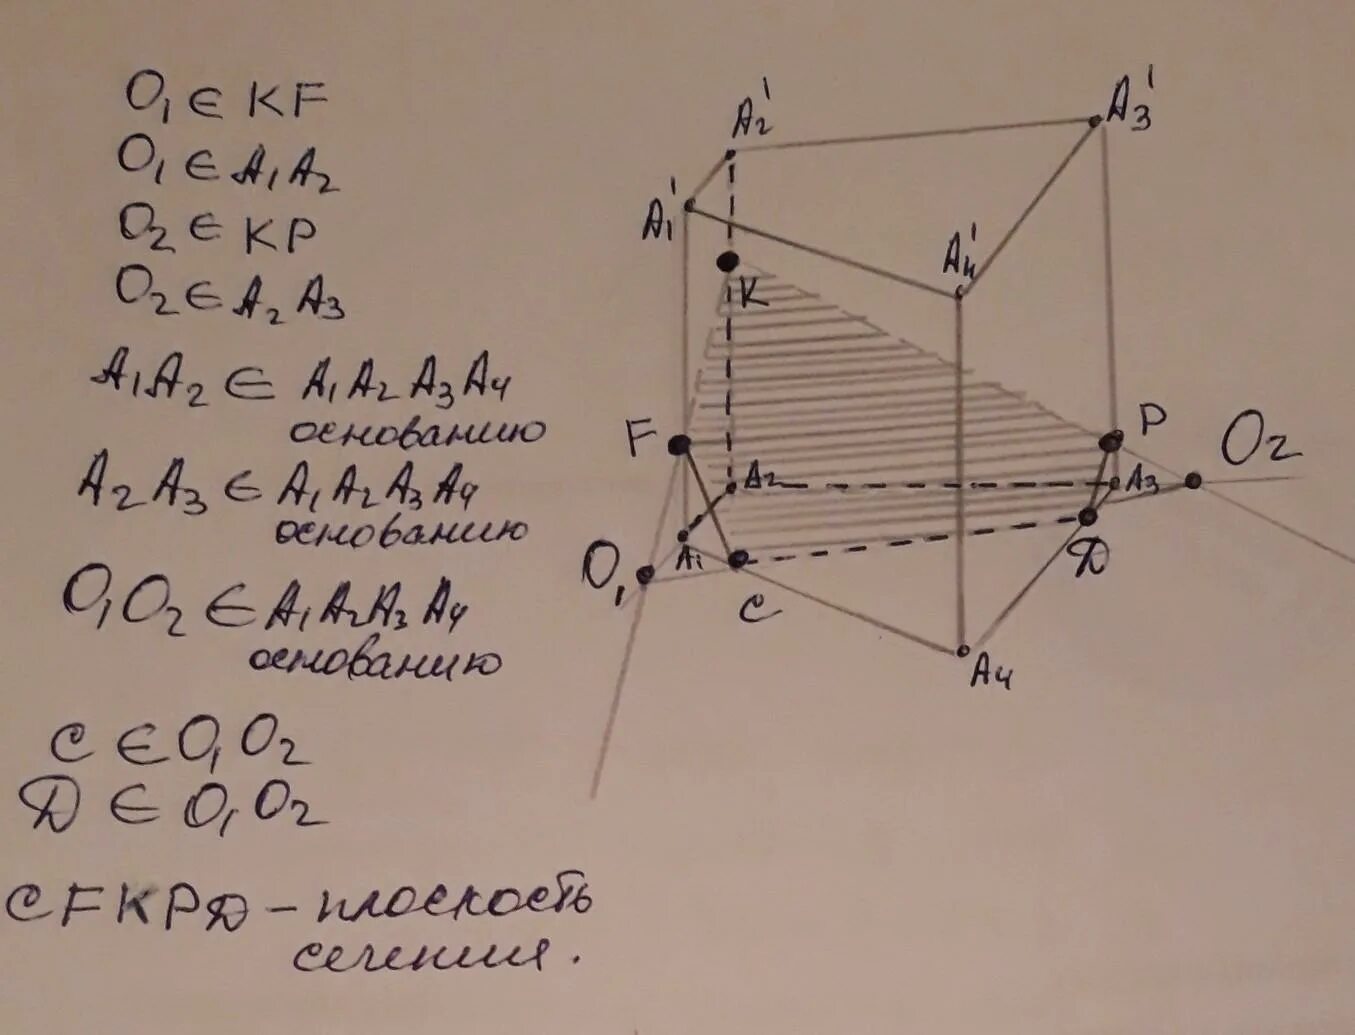 O₁ ∈ KF
O₁ ∈ A₁A₂
O₂ ∈ KP
O₂ ∈ A₂A₃
A₁A₂ ∈ A₁A₂A₃A₄
основанию
A₂A₃ ∈ A₁A₂A₃A₄
основанию
O₁O₂ ∈ A₁A₂A₃A₄
основанию
C ∈ O₁O₂
Д ∈ O₁O₂
CFKPД – плоскость
сечения.
A₂'
A₃'
A₁'
A₄'
K
F
P
O₂
A₂
A₃
A₁
Д
O₁
C
A₄